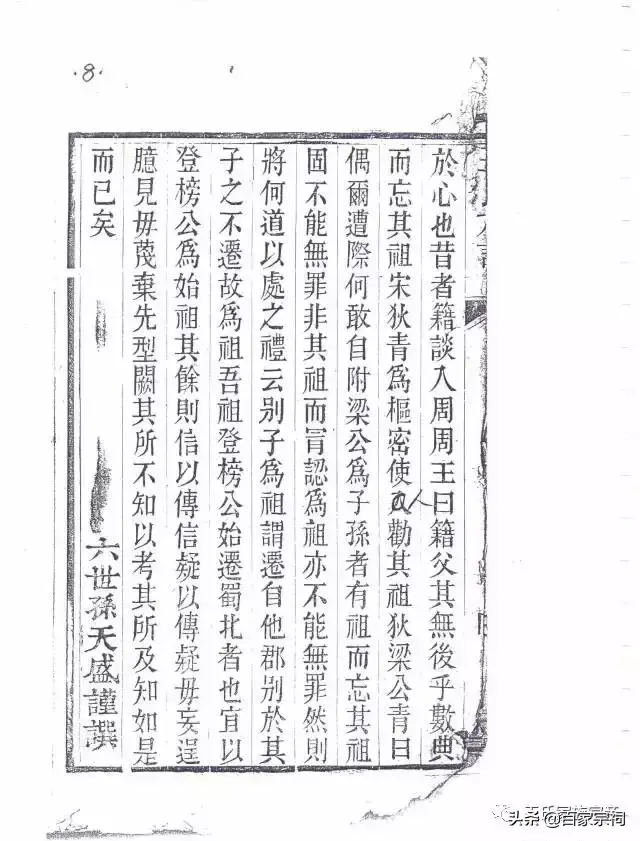 8
於心也昔者籍談入周周王曰籍父其無後乎數典
而忘其祖宋狄青爲樞密使人勸其祖狄梁公青曰
偶爾遭際何敢自附梁公爲子孫者有祖而忘其祖
固不能無罪非其祖而冐認爲祖亦不能無罪然則
將何道以處之禮云別子爲祖謂遷自他郡别於其
子之不遷故爲祖吾祖登榜公始遷蜀北者也宜以
登榜公爲始祖其餘則信以傳信疑以傳疑毋妄逞
臆見毋蔑棄先型闕其所不知以考其所及知如是
而已矣
六世孫天盛謹譔
王氏家族宗親
头条 @百家宗祠